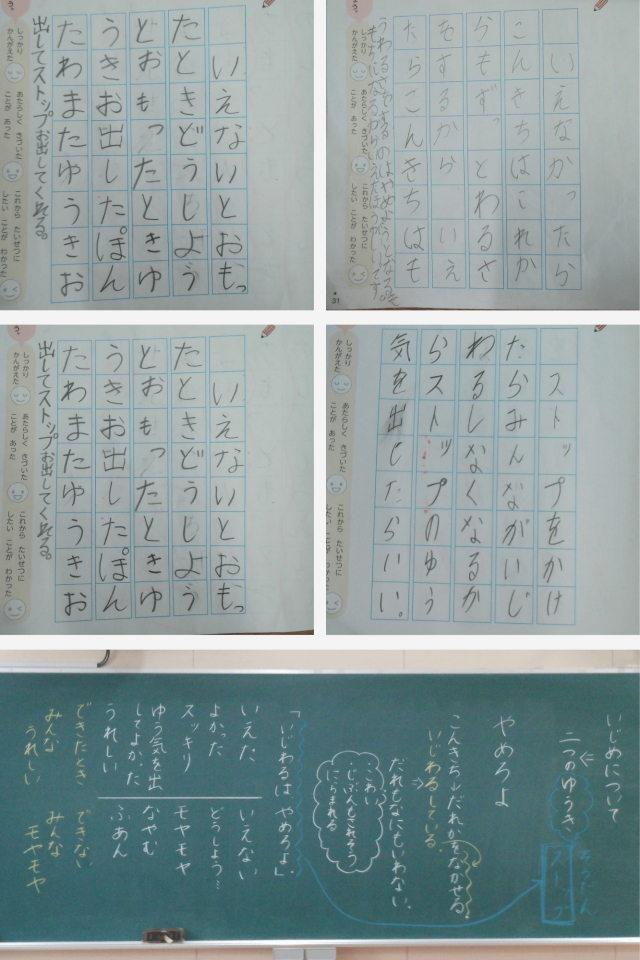 いえないとおもっ
たときどうしよう
とおもったときゆ
うきお出したぽん
たわまたゆうきお
出してストップお出してくれる。
しっかり
かんがえた
あたらしく きづいた
ことが あった
これから たいせつに
したい ことが わかった
いえなかったら
こんきちはこれか
らもずっとわるさ
をするから いえ
たらこんきちはも
しっかり
かんがえた
あたらしく きづいた
ことが あった
これから たいせつに
したい ことが わかった
31
いえないとおもっ
たときどうしよう
とおもったときゆ
うきお出したぽん
たわまたゆうきお
出してストップお出してくれる。
しっかり
かんがえた
あたらしく きづいた
ことが あった
これから たいせつに
したい ことが わかった
ストップをかけ
たらみんながいじ
わるしなくなるか
らストップのゆう
気を出したらいい。
しっかり
かんがえた
あたらしく きづいた
ことが あった
これから たいせつに
したい ことが わかった
いじめについて
二つのゆうき
そうだん
ストップ
やめろよ
こんきち→だれかをなかせる。
いじわるしている
だれもなにもいわない。
こわい
じぶんもされそう
にらまれる
「いじわるは やめろよ」
いえた
よかった
スッキリ
ゆう気を出
してよかった
うれしい
いえない
どうしよう…
モヤモヤ
なやむ
ふあん
できたとき
みんな
うれしい
できない
みんな
モヤモヤ